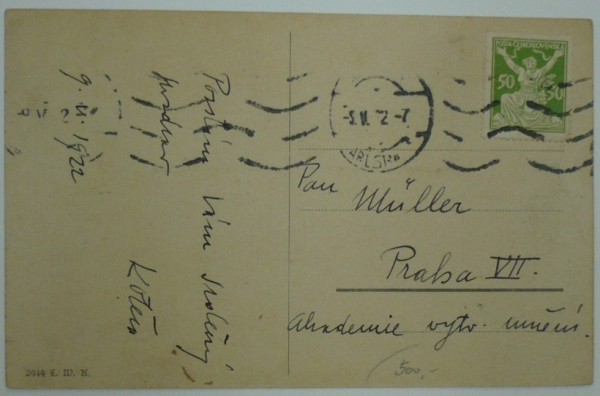 Posílám Vám srdečný
pozdrav
9. VI. 1922
POŠTA ČESKOSLOVENSKÁ
50 50
-5.VI. 22-7
Pan Müller
Praha VII.
Akademie výtv. umění.
500,-